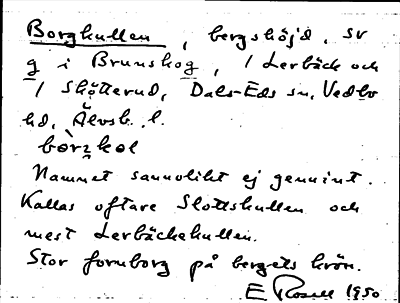 Borgkullen, bergshöjd, SV
g i Brunskog, 1 Lerbäck och
1 Skötterud, Dals-Eds sn, Vedbo
hd, Älvsb. l.
Namnet sannolikt ej genuint.
Kallas oftare Slottskullen och
mest Lerbäckekullen.
Stor fornborg på bergets krön.
E Rosell 1950